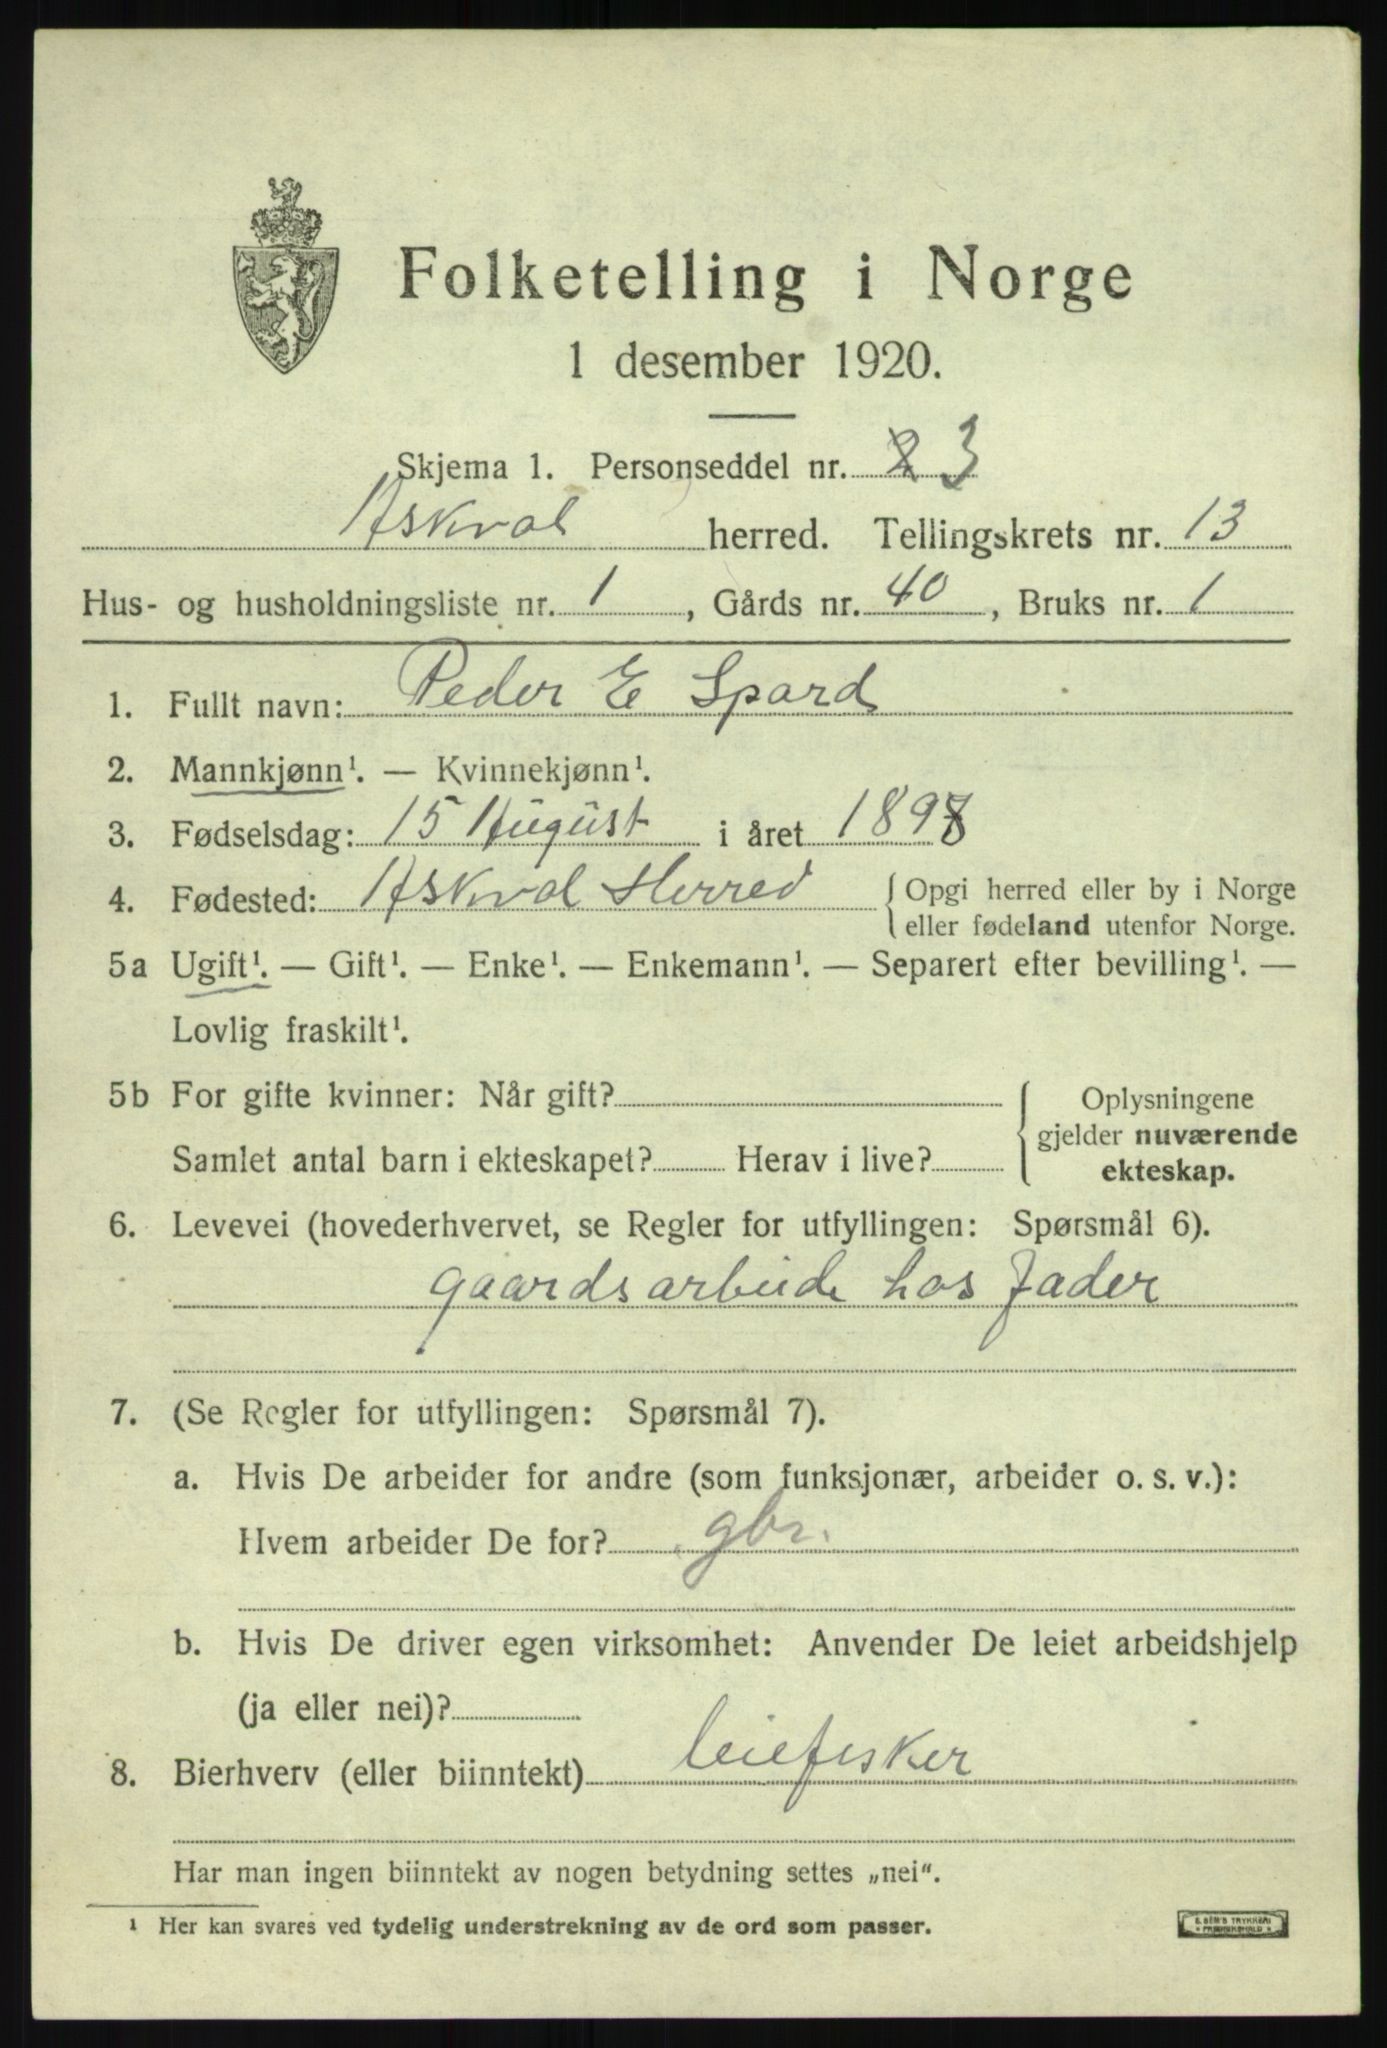 Folketelling i Norge
1 desember 1920.
Skjema 1. Personseddel nr. 2 3
Askvol herred. Tellingskrets nr. 13
Hus- og husholdningsliste nr. 1, Gårds nr. 40, Bruks nr. 1
1. Fullt navn: Peder E Spord
2. Mannkjønn¹. — Kvinnekjønn¹.
3. Fødselsdag: 15 August i året 1898
4. Fødested: Askvol Herred {Opgi herred eller by i Norge
eller fødeland utenfor Norge.
5a Ugift¹. — Gift¹. — Enke¹. — Enkemann¹. — Separert efter bevilling¹. —
Lovlig fraskilt¹.
5b For gifte kvinner: Når gift? { Oplysningene
gjelder nuværende
Samlet antal barn i ekteskapet? Herav i live? ekteskap.
6. Levevei (hovederhvervet, se Regler for utfyllingen: Spørsmål 6).
gaardsarbeide hos Fader
7. (Se Regler for utfyllingen: Spørsmål 7).
a. Hvis De arbeider for andre (som funksjonær, arbeider o. s. v.):
Hvem arbeider De for? gbr.
b. Hvis De driver egen virksomhet: Anvender De leiet arbeidshjelp
(ja eller nei)?
8. Bierhverv (eller biinntekt) leiefisker
Har man ingen biinntekt av nogen betydning settes „nei“.
¹ Her kan svares ved tydelig understrekning av de ord som passer.